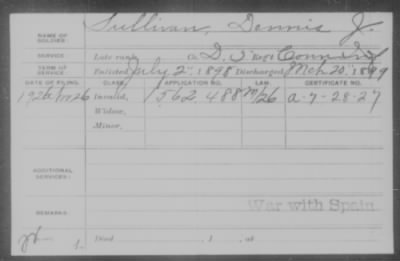 NAME OF SOLDIER: Sullivan, Dennis J.
SERVICE: Late rank, Co. D, 3" Reg't Conn Inf
TERM OF SERVICE: Enlisted July 2", 1898 Discharged Mch 20", 1899
DATE OF FILING. CLASS. APPLICATION NO. LAW. CERTIFICATE NO.
1926 26 Invalid, 1562 488 26 a-7-28-27
Widow,
Minor,
ADDITIONAL SERVICES:
War with Spain
REMARKS:
1- Died , 1 , at